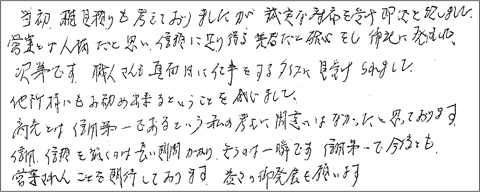 当初、相見積りも考えておりましたが 誠実な対応を受け 即決と致しました。
営業とは人柄だと思い、信頼に足り得る業者だと確心をし 御社に発注した
次第です。職人さんも真面目に仕事をするタイプに見受けられました。
他所様にもお勧め出来るということを感じました。
商売とは 信用第一であるという私の考えに間違いはなかったと思っております。
信用、信頼を築くのは長い時間がかかり、失うのは一瞬です 信用第一で今後とも
営業されんことを期待しております。益々の御発展を願います